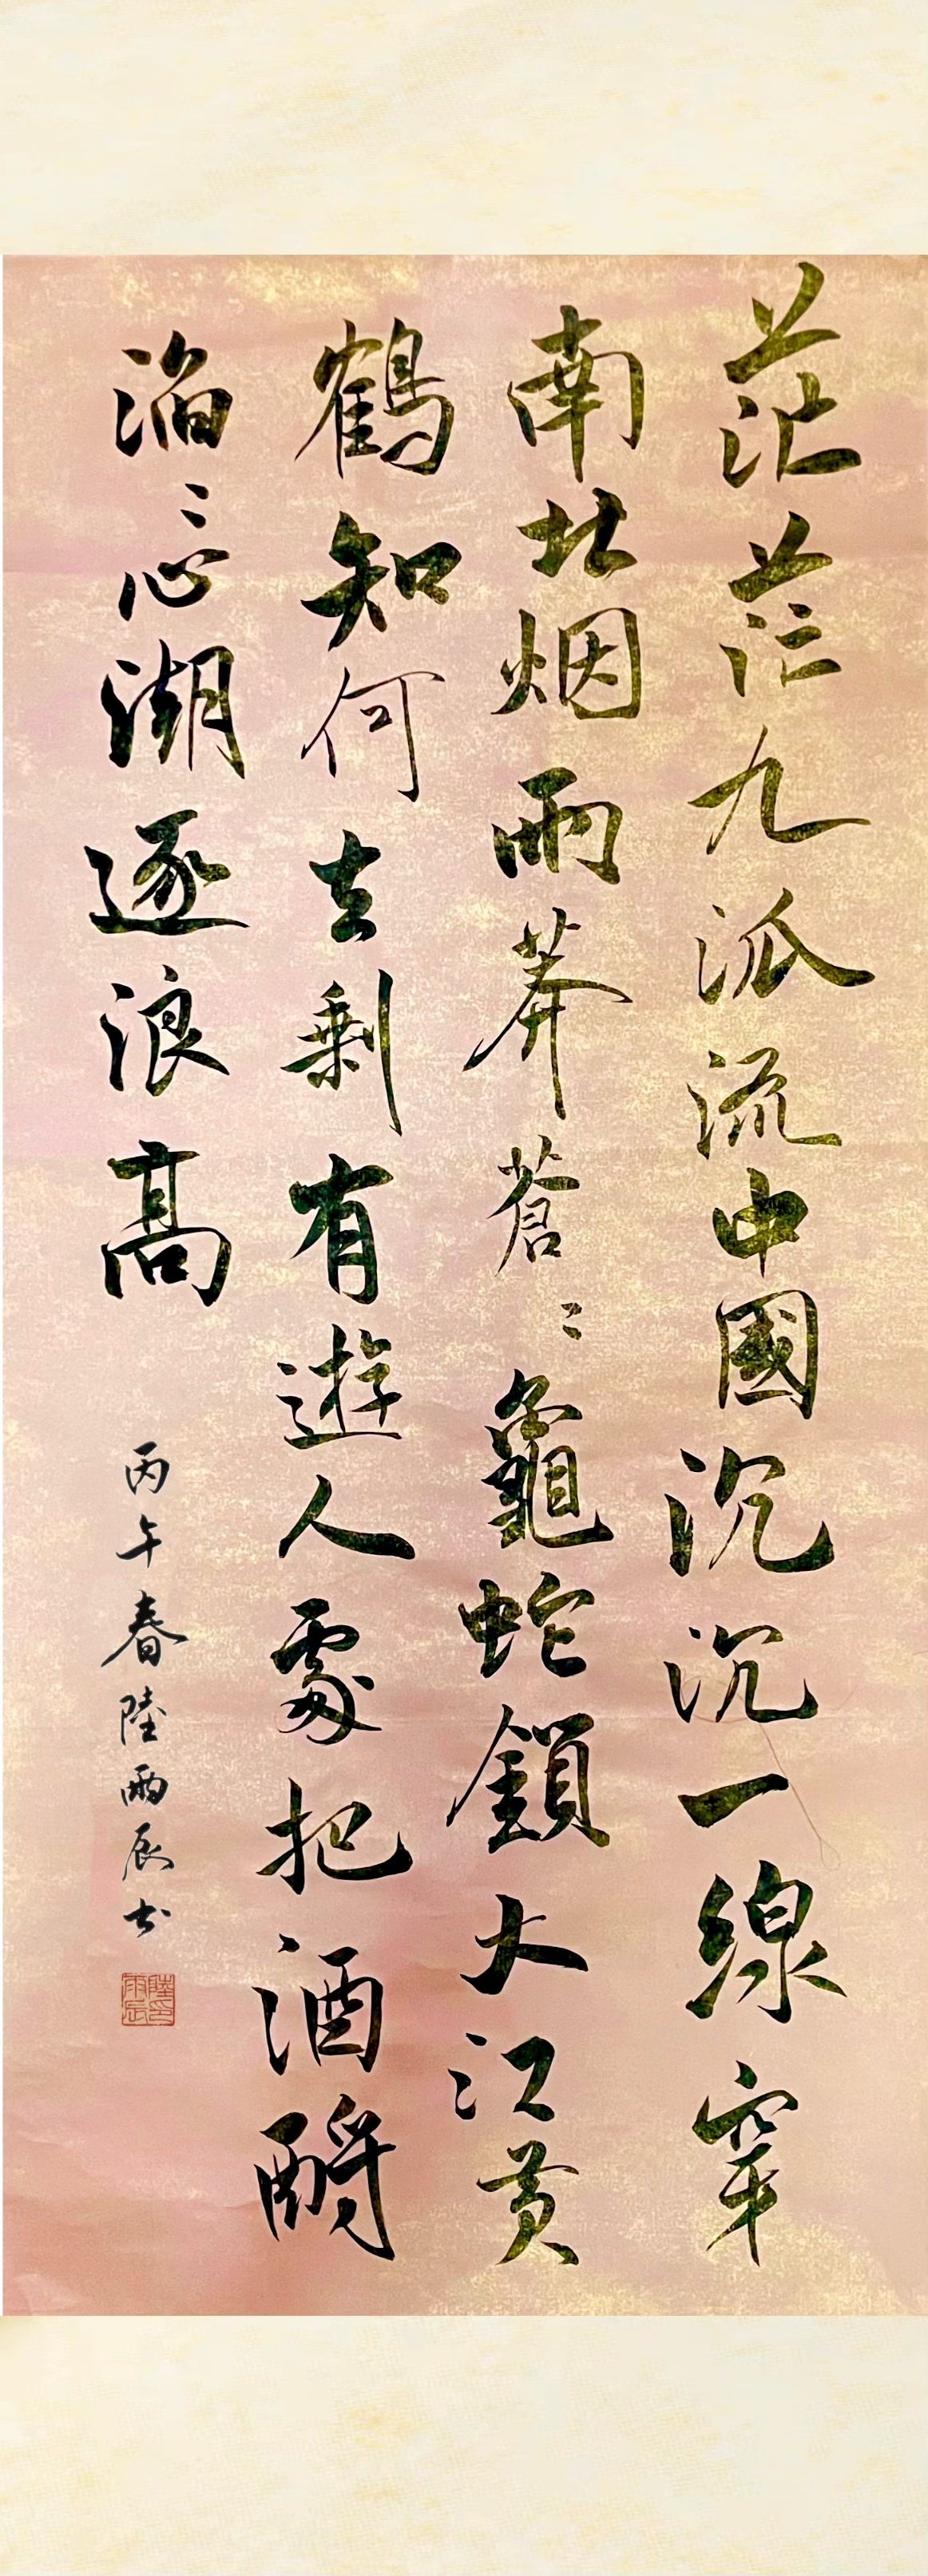 茫茫九派流中國沉沉一線穿
南北烟雨莽蒼〻龜蛇鎖大江黄
鶴知何去剩有遊人處把酒酹
滔〻心潮逐浪高
丙午春陸雨辰书
陸印雨辰